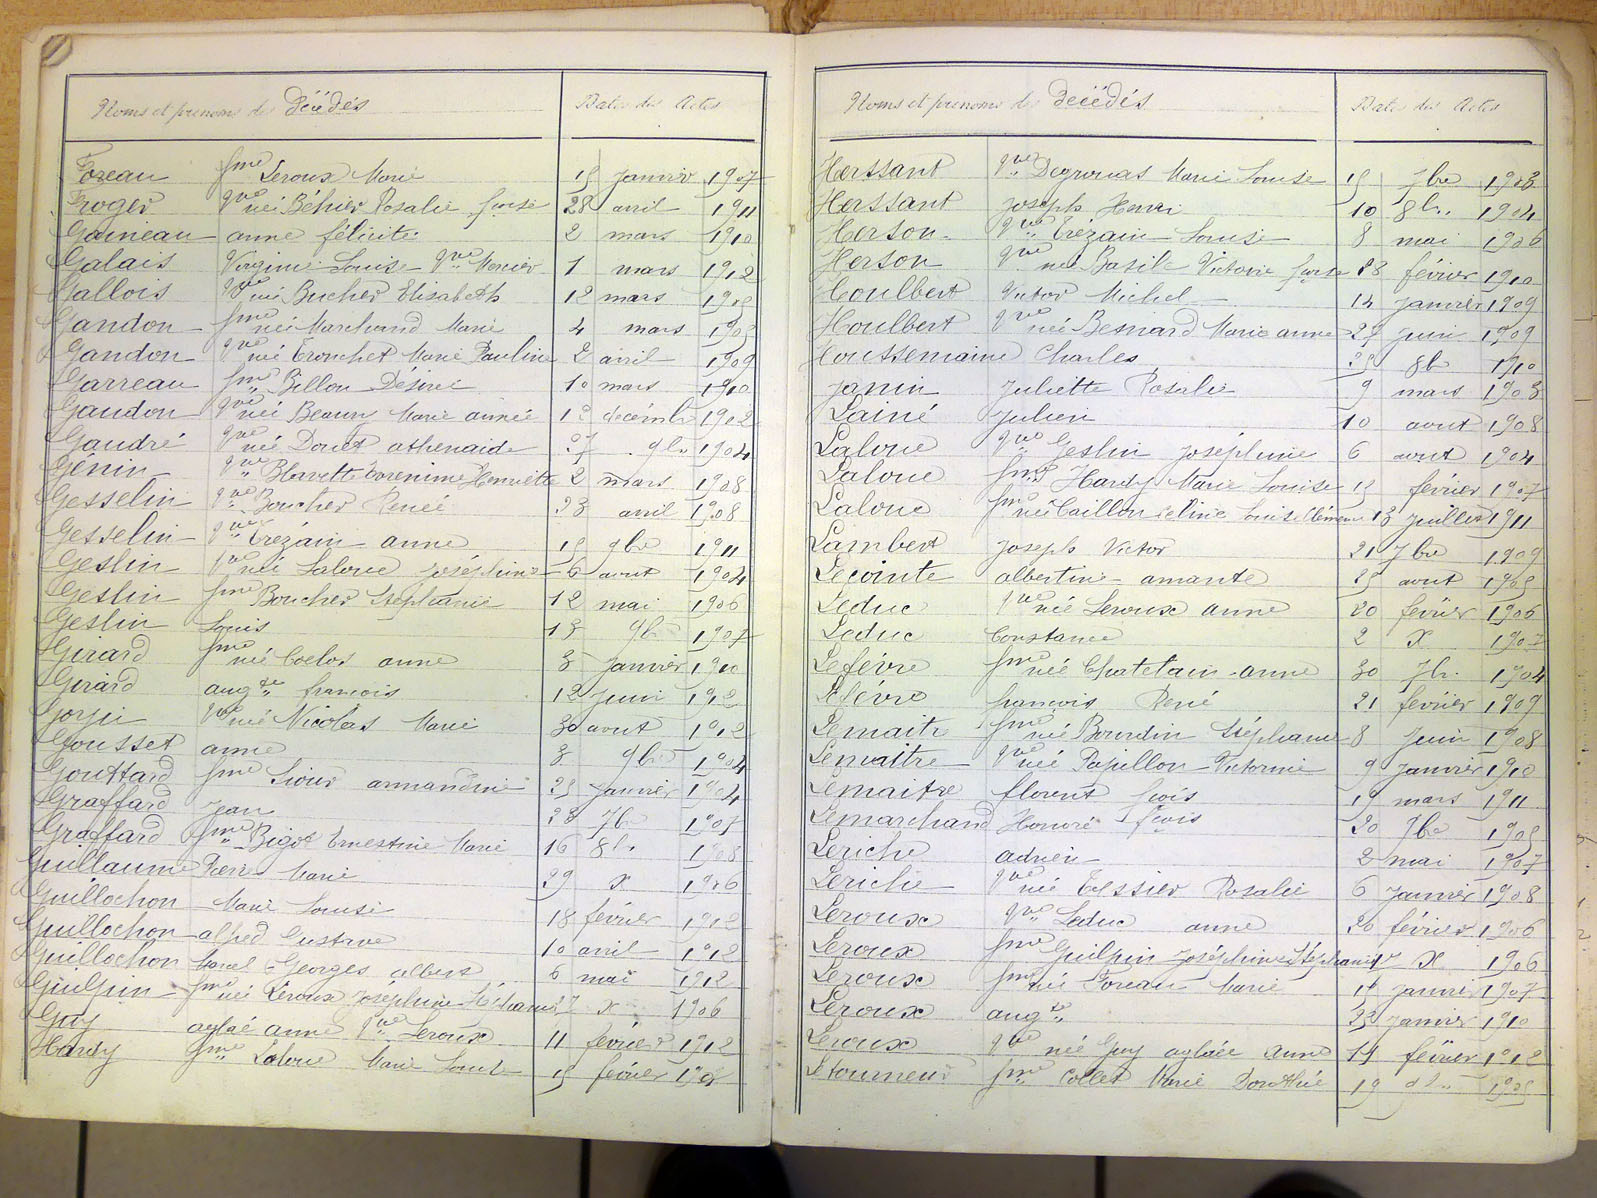 Noms et prénoms des Décédés Dates des Actes
Foreau fme Leroux Marie 15 janvier 1907
Froger Vve née Béhier Rosalie fçoise 28 avril 1911
Gaineau anne félicité 2 mars 1910
Galais Virginie Louise Vve Mercier 1 mars 1912
Gallois Vve née Bucher Elisabeth 12 mars 1905
Gandon fme née Marchand Marie 4 mars 1905
Gandon Vve née Tronchet Marie Pauline 2 avril 1909
Garreau fme Billon Désirée 10 mars 1910
Gaudon Vve née Beauny Marie aimée 12 décembre 1902
Gaudré Vve née Douet athenaide 27 9bre 1904
Génin Vve Henriette 2 mars 1908
Gesselin Vve Boucher Renée 23 avril 1908
Gesselin Vve Trézain anne 15 9bre 1911
Geslin Vve née Laloue Joséphine 6 aout 1904
Geslin fme Boucher Stéphanie 12 mai 1906
Geslin Louis 13 9bre 1907
Girard fme née Coelos anne 3 janvier 1910
Girard augte françois 12 juin 1912
Gorju Vve née Nicolas Marie 30 aout 1912
Gousset anne 3 9bre 1904
Gouttard fme Sioux armandine 25 janvier 1904
Graffard Jean 28 7bre 1905
Graffard fme Bigot Ernestine Marie 16 8bre 1908
Guillaume Pierre Marie 29 X 1906
Guillochon Marie Louise 18 février 1912
Guillochon alfred Gustave 10 avril 1912
Guillochon Marcel Georges albert 6 mai 1912
Guilpin fme née Leroux Joséphine Stéphanie 27 X 1906
Guy aglaé anne Vve Leroux 11 février 1912
Hardy fme Laloue Marie Louise 15 février 1907
Noms et prénoms des Décédés Dates des Actes
Herssant Vve Degrouas Marie Louise 15 7bre 1903
Herssant Joseph Henri 10 8bre 1904
Herson Vve Trézain Louise 8 mai 1906
Herson Vve née Basile Victorie fçoise 28 février 1910
Houlbert Victor Michel 14 janvier 1909
Houlbert Vve née Besnard Marie anne 27 juin 1909
Houssemaine Charles 25 8b 1910
Janin Juliette Rosalie 9 mars 1903
Lainé Julien 10 aout 1908
Laloue Vve Geslin Joséphine 6 aout 1904
Laloue fme Hardy Marie Louise 15 février 1907
Laloue fme née Caillon Céline Louise Clémence 13 juillet 1911
Lambert Joseph Victor 21 7bre 1909
Lecointe albertine amante 25 aout 1905
Leduc Vve née Leroux anne 20 février 1906
Leduc Constance 2 X 1907
Lefévre fme née Chatelain anne 30 7bre 1904
Lefévre françois René 21 février 1909
Lemaitre fme née Bourdin Stéphanie 8 juin 1908
Lemaitre Vve née Papillon Victorine 9 janvier 1910
Lemaitre florent fçois 19 mars 1911
Lemarchand Honoré fçois 20 7bre 1905
Leriche adrien 2 mai 1907
Leriche Vve née Tessier Rosalie 6 janvier 1908
Leroux Vve Leduc anne 20 février 1906
Leroux fme Guilpin Joséphine Stéphanie 27 X 1906
Leroux fme née Foreau Marie 15 janvier 1907
Leroux augte 23 janvier 1910
Leroux Vve née Guy aglaée anne 11 février 1912
Letourneur fme Collet Marie Dorothée 19 9bre 1905